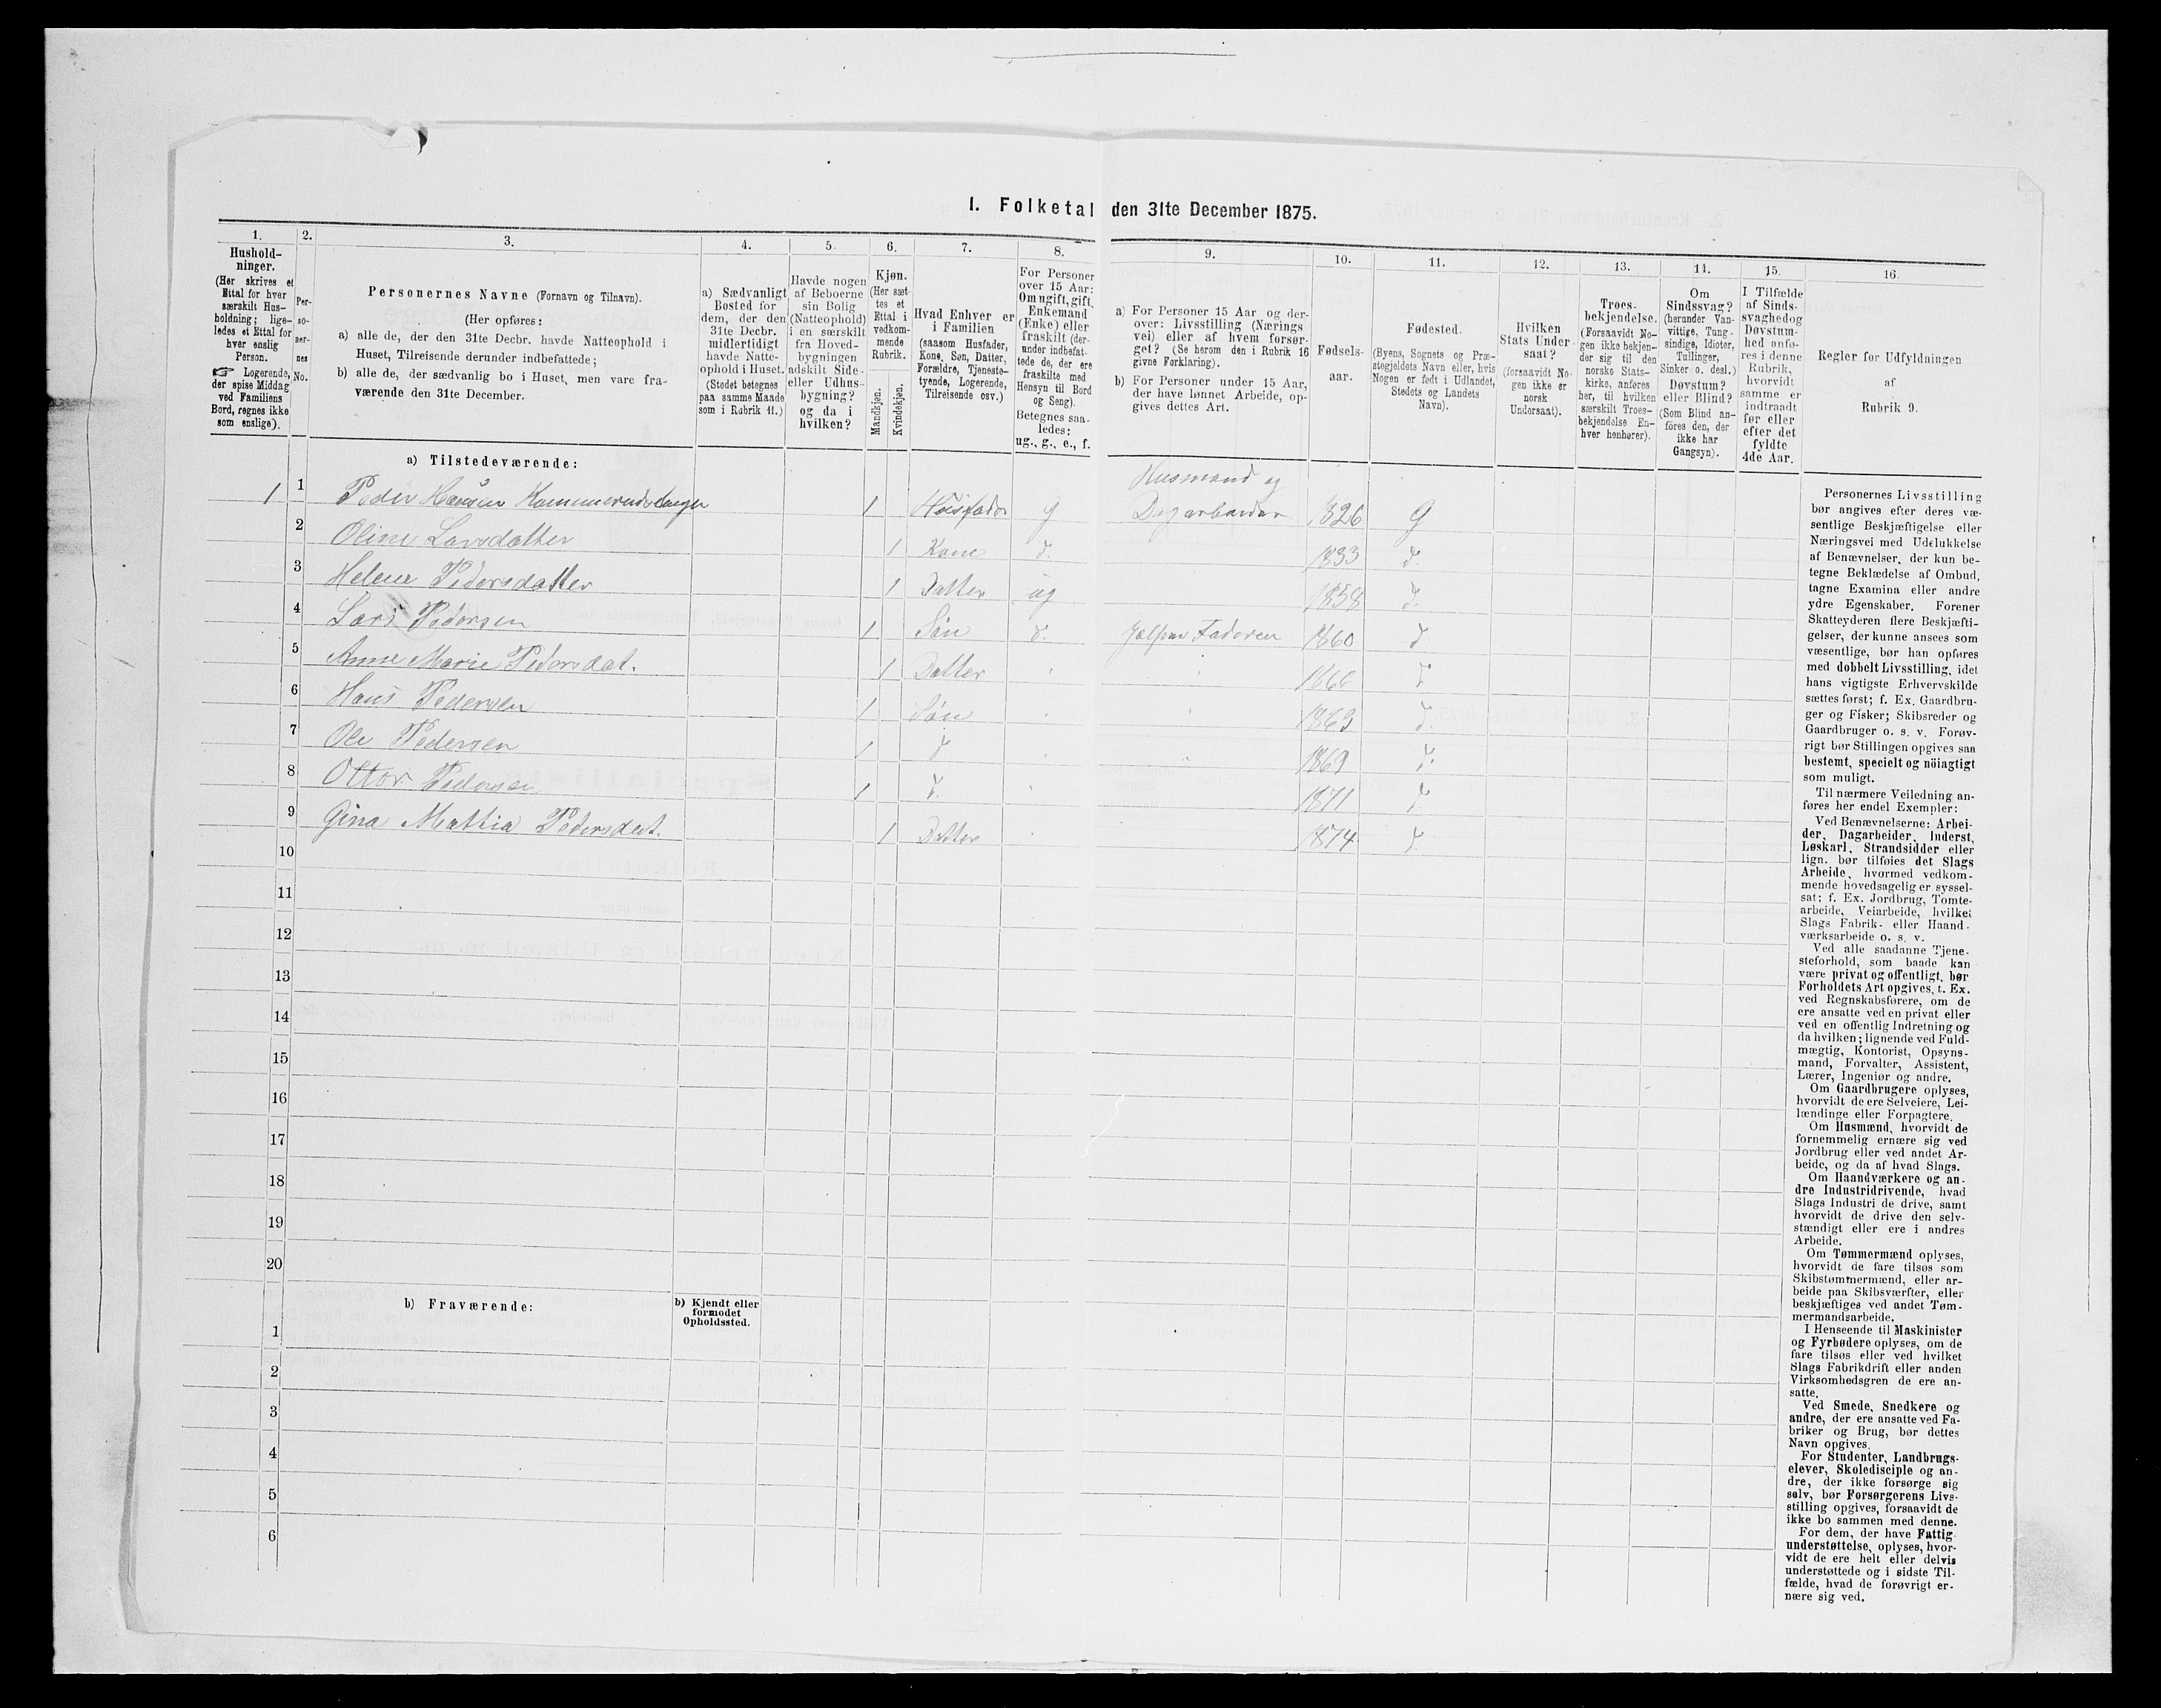 I. Folketal den 31te December 1875.
1.
Hushold-
ninger.
(Her skrives et
Ettal for hver
særskilt Hus-
holdning; lige-
ledes et Ettal for
hver enslig
Person.
☞ Logerende,
der spise Middag
ved Familiens
Bord, regnes ikke
som enslige).
2.
Per-
so-
ner-
nes
No.
3.
Personernes Navne (Fornavn og Tilnavn).
(Her opføres:
a) alle de, der den 31te Decbr. havde Natteophold i
Huset, Tilreisende derunder indbefattede;
b) alle de, der sædvanlig bo i Huset, men vare fra-
værende den 31te December.
4.
a) Sædvanligt
Bosted for
dem, der den
31te Decbr.
midlertidigt
havde Natte-
ophold i Huset.
(Stedet betegnes
paa samme Maade
som i Rubrik 11.)
5.
Havde nogen
af Beboerne
sin Bolig
(Natteophold)
i en særskilt
fra Hoved-
bygningen
adskilt Side-
eller Udhus-
bygning?
og da i
hvilken?
6.
Kjøn.
(Her sæt-
tes et
Ettal i
vedkom-
mende
Rubrik.
Mandkjøn.
Kvindekjøn.
7.
Hvad Enhver er
i Familien
(saasom Husfader,
Kone, Søn, Datter,
Forældre, Tjeneste-
tyende, Logerende,
Tilreisende osv.)
8.
For Personer
over 15 Aar:
Om ugift, gift,
Enkemand
(Enke) eller
fraskilt (der-
under indbefat-
tede de, der ere
fraskilte med
Hensyn til Bord
og Seng).
Betegnes saa-
ledes:
ug., g., e., f.
9.
a) For Personer 15 Aar og der-
over: Livsstilling (Nærings
vei) eller af hvem forsør-
get? (Se herom den i Rubrik 16
givne Forklaring).
b) For Personer under 15 Aar,
der have lønnet Arbeide, op-
gives dettes Art.
10.
Fødsels-
aar.
11.
Fødested.
(Byens, Sognets og Præ-
stegjeldets Navn eller, hvis
Nogen er født i Udlandet,
Stedets og Landets
Navn).
12.
Hvilken
Stats Under-
saat?
(forsaavidt No-
gen ikke er
norsk
Undersaat).
13.
Troes-
bekjendelse.
(Forsaavidt No-
gen ikke bekjen-
der sig til den
norske Stats-
kirke, anføres
her, til hvilken
særskilt Troes-
bekjendelse En-
hver henhører).
14.
Om
Sindssvag?
(herunder Van-
vittige, Tung-
sindige, Idioter,
Tullinger,
Sinker o. desl.)
Døvstum?
eller Blind?
(Som Blind an-
føres den, der
ikke har
Gangsyn).
15.
I Tilfælde
af Sinds-
svaghedog
Døvstum-
hed anfø-
res i denne
Rubrik,
hvorvidt
samme er
indtraadt
før eller
efter det
fyldte
4de Aar.
16.
Regler for Udfyldningen
af
Rubrik 9.
a) Tilstedeværende:
Husmand og
1 1 Peder Hansen 1 Husfader g Dagarbeider 1826 G
2 Oline Larsdatter 1 Kone d. 1833 d.
3 Helene Pedersdatter 1 Datter ug 1858 d.
4 Lars Pedersen 1 Søn d. Hjelper Faderen 1860 d
5 Anne Marie Pedersdat. 1 Datter 1866 d
6 Hans Pedersen 1 Søn 1863 d.
7 Ole Pedersen 1 d 1869 d.
8 Ottor Pedersen 1 d. 1871 d.
9 Gina Mattia Pedersdat. 1 Datter 1874 d.
10
11
12
13
14
15
16
17
18
19
20
b) Fraværende:
b) Kjendt eller
formodet
Opholdssted.
1
2
3
4
5
6
Personernes Livsstilling
bør angives efter deres væ-
sentlige Beskjæftigelse eller
Næringsvei med Udelukkelse
af Benævnelser, der kun be-
tegne Beklædelse af Ombud,
tagne Examina eller andre
ydre Egenskaber. Forener
Skatteyderen flere Beskjæfti-
gelser, der kunne ansees som
væsentlige, bør han opføres
med dobbelt Livsstilling, idet
hans vigtigste Erhvervskilde
sættes først; f. Ex. Gaardbru-
ger og Fisker; Skibsreder og
Gaardbruger o. s. v. Forøv-
rigt bør Stillingen opgives saa
bestemt, specielt og nöiagtigt
som muligt.
Til nærmere Veiledning an-
føres her endel Exempler:
Ved Benævnelserne: Arbei-
der, Dagarbeider, Inderst,
Løskarl, Strandsidder eller
lign. bør tilføies det Slags
Arbeide, hvormed vedkom-
mende hovedsagelig er syssel-
sat; f. Ex. Jordbrug, Tomte-
arbeide, Veiarbeide, hvilket
Slags Fabrik- eller Haand-
værksarbeide o. s. v.
Ved alle saadanne Tjene-
steforhold, som baade kan
være privat og offentligt, bør
Forholdets Art opgives, t. Ex.
ved Regnskabsførere, om de
ere ansatte ved en privat eller
ved en offentlig Indretning og
da hvilken; lignende ved Fuld-
mægtig, Kontorist, Opsyns-
mand, Forvalter, Assistent,
Lærer, Ingeniør og andre.
Om Gaardbrugere oplyses,
hvorvidt de ere Selveiere, Lei-
lændinge eller Forpagtere.
Om Husmænd, hvorvidt de
fornemmelig ernære sig ved
Jordbrug eller ved andet Ar-
beide, og da af hvad Slags.
Om Haandværkere og an-
dre Industridrivende, hvad
Slags Industri de drive, samt
hvorvidt de drive den selv-
stændigt eller ere i andres
Arbeide.
Om Tømmermænd oplyses,
hvorvidt de fare tilsøs som
Skibstømmermænd, eller ar-
beide paa Skibsværfter, eller
beskjæftiges ved andet Tøm-
mermandsarbeide.
I Henseende til Maskinister
og Fyrbødere oplyses, om de
fare tilsøs eller ved hvilket
Slags Fabrikdrift eller anden
Virksomhedsgren de ere an-
satte.
Ved Smede, Snedkere og
andre, der ere ansatte ved Fa-
briker og Brug, bør dettes
Navn opgives.
For Studenter, Landbrugs-
elever, Skoledisciple og an-
dre, der ikke forsørge sig
selv, bør Forsørgerens Livs-
stilling opgives, forsaavidt de
ikke bo sammen med denne.
For dem, der have Fattig-
understøttelse, oplyses, hvor-
vidt de ere helt eller delvis
understøttede og i sidste Til-
fælde, hvad de forøvrigt er-
nære sig ved.